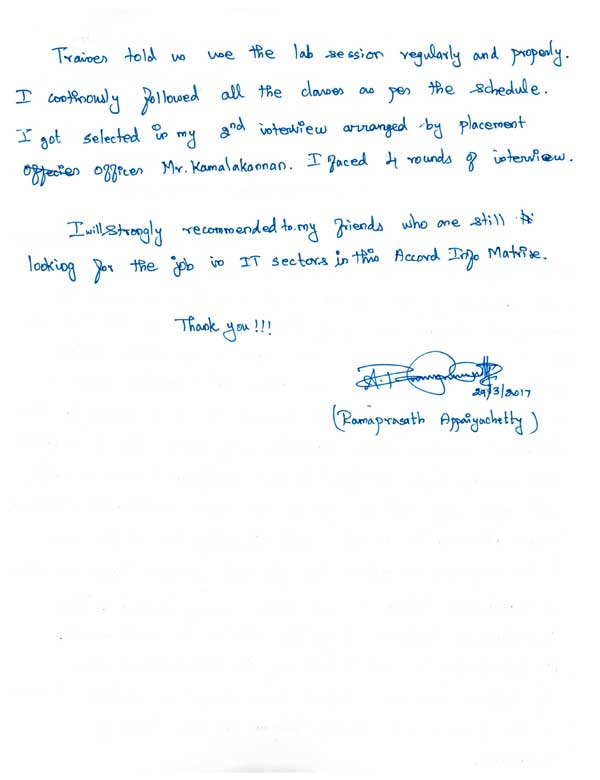 Trainees told us use the lab session regularly and properly.
I continously followed all the classes as per the schedule.
I got selected in my 2nd interview arranged by placement
officer Mr. Kamalakannan. I faced 4 rounds of interview.
I will strongly recommended to my friends who are still
looking for the job in IT sectors in this Accord Info Matrix.
Thank you!!!
29/3/2017
(Ramaprasath Appaiyachetty)